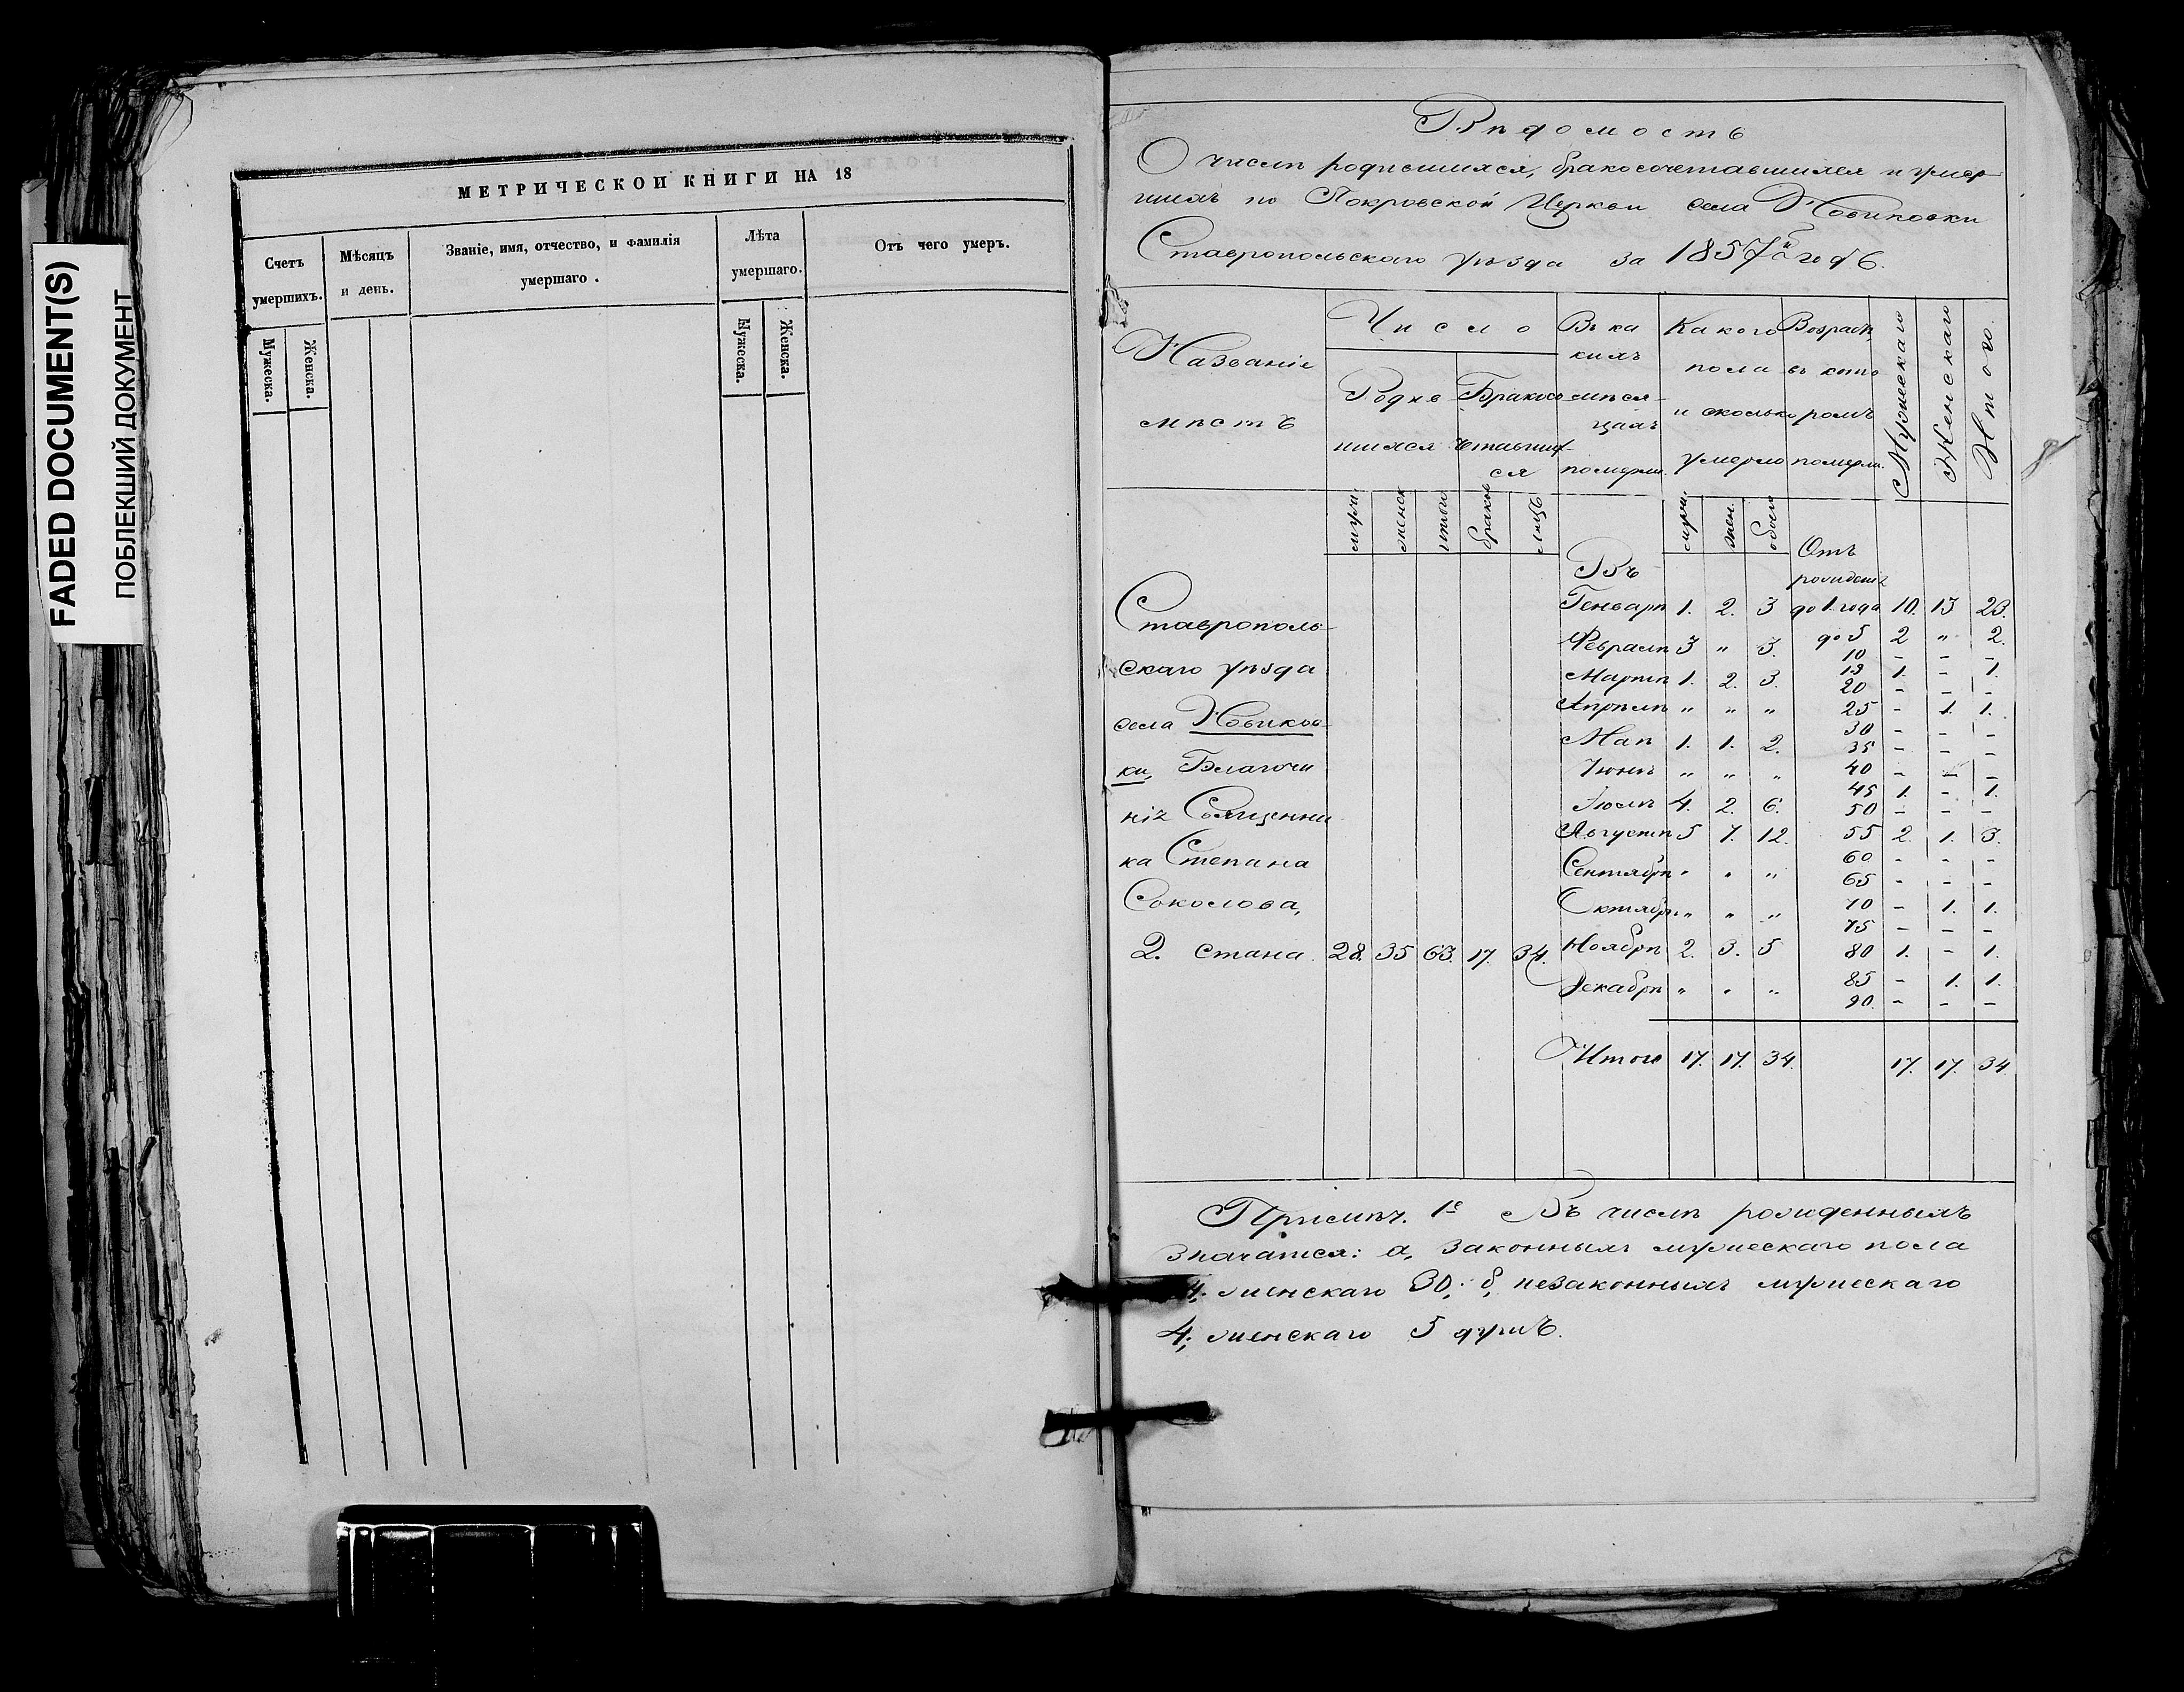 FADED DOCUMENT(S)
ПОБЛЕКШИЙ ДОКУМЕНТ
МЕТРИЧЕСКОЙ КНИГИ НА 18
Счетъ умершихъ.
Мужеска.
Женска.
Мѣсяцъ и день.
Званіе, имя, отчество, и фамилія
умершаго.
Лѣта
умершаго.
Мужеска.
Женска.
Отъ чего умеръ.
Вѣдомость
О числѣ родившихся, бракосочетавшихся и умер-
шихъ по Покровской Церкви села Новиковки
Ставропольскаго уѣзда за 1857й годъ.
Названіе
мѣстъ
Число
Родив-
шихся
Бракосо-
четавших-
ся
Въ ка
кихъ
мѣся-
цахъ
померли.
Какого
пола
и сколько
умерло
Возрастъ,
въ кото
ромъ
померли.
Мужескаго
Женскаго
Итого.
муж.
женск
итого
браковъ
лицъ
муж.
жен.
обоего
Въ
Отъ
рожденія
Генварѣ 1. 2. 3 до 1. года 10. 13 23.
Февралѣ 3 " 3. до 5 2 " 2.
10 - - -
Мартѣ 1. 2. 3. 13 1. - 1.
20 - - -
Апрѣлѣ " " " 25 - 1. 1.
30 - - -
Маѣ 1. 1. 2. 35 - - -
Іюнѣ " " " 40 - - -
45 1. - 1.
Іюлѣ 4. 2. 6. 50 - - -
Августѣ 5 7. 12. 55 2. 1. 3.
60 - - -
Сентябрѣ " " " 65 - - -
Октябрѣ " " " 70 - 1. 1.
75 - - -
Ноябрѣ 2. 3. 5 80 1. - 1.
Декабрѣ " " " 85 - 1. 1.
90 - - -
Итого 17. 17. 34. 17. 17. 34.
Ставрополь-
скаго уѣзда
села Новиков-
ки, Благочи
нія Священни
ка Степана
Соколова,
2. стана. 28. 35 63. 17. 34.
Примѣч. 1е Въ числѣ рожденныхъ
значатся: а, законныхъ мужескаго пола
4; женскаго 30; б, незаконныхъ мужескаго
4; женскаго 5 душъ.